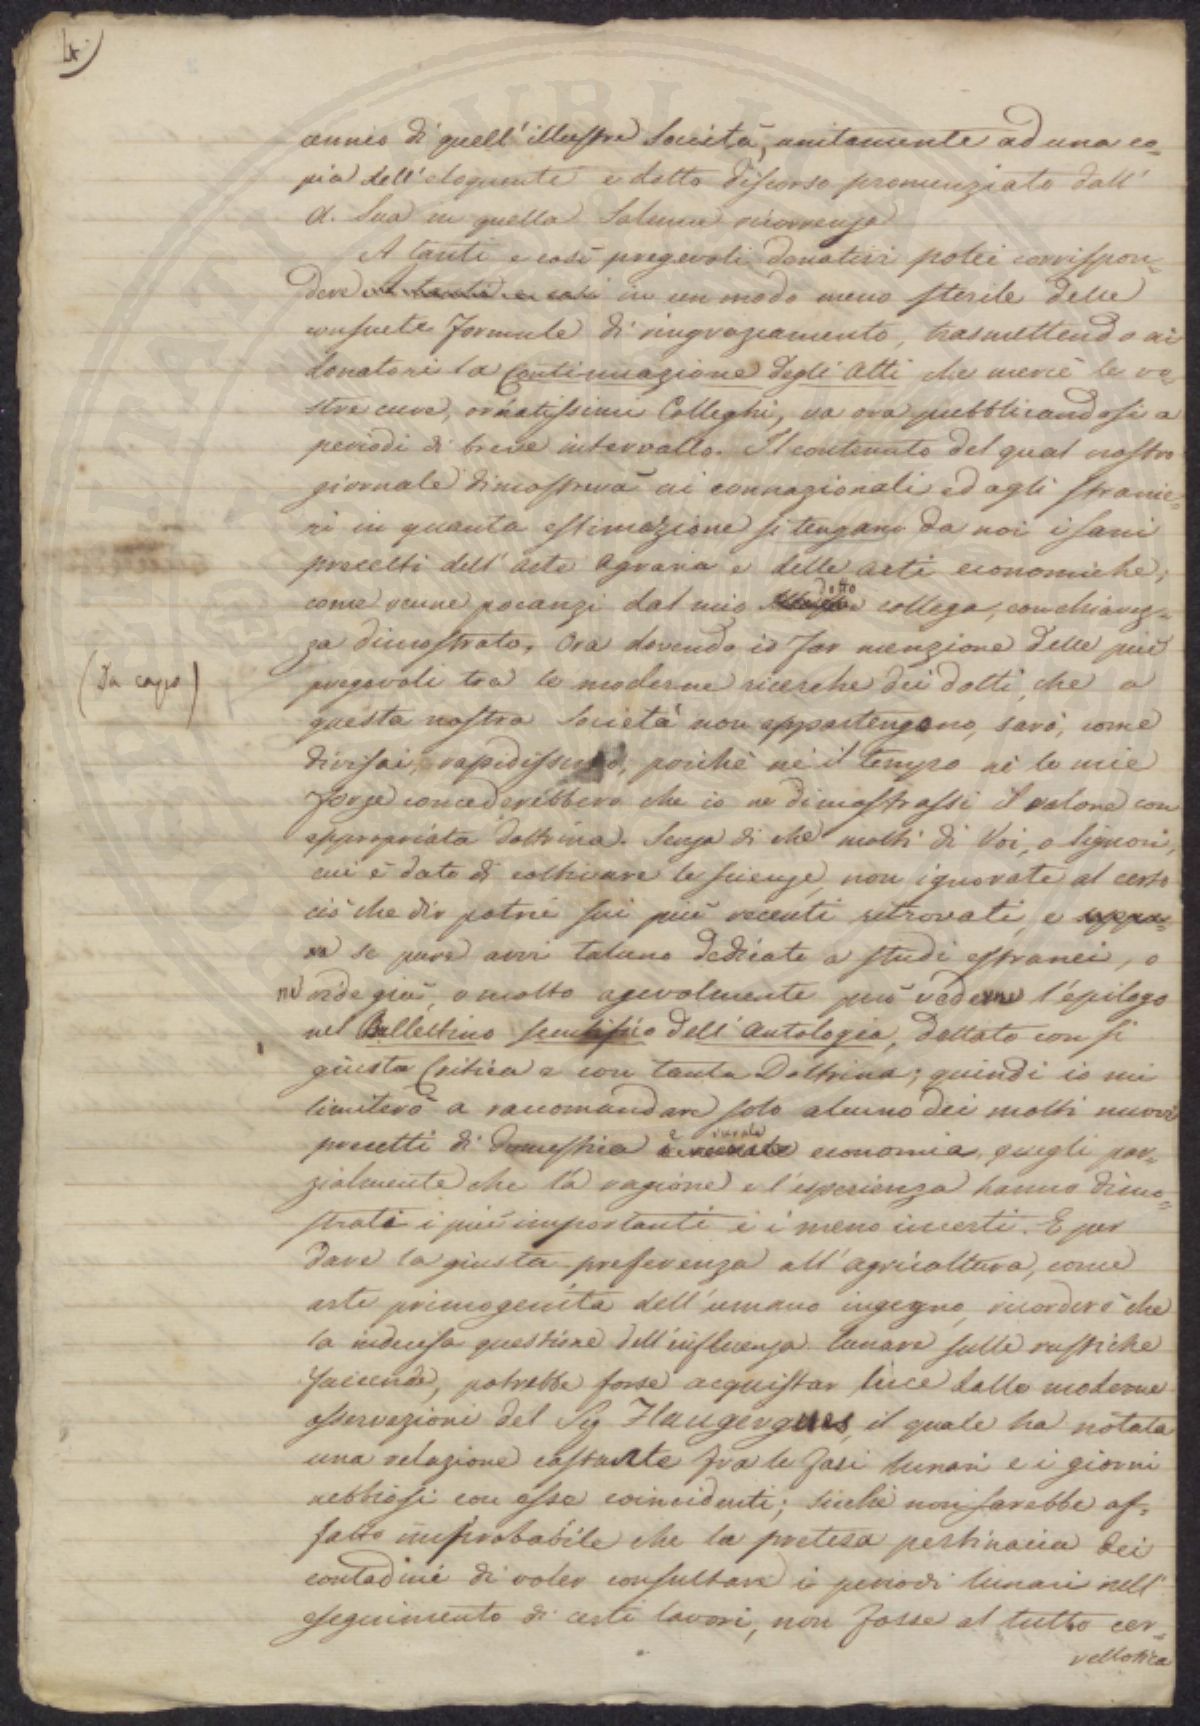 4.
cennio di quell'illustre Società, unitamente ad una co-
pia dell'eloquente e dotto discorso pronunziato dall'
A. Sua in quella Solenne ricorrenza
A tanti e così pregevoli donativi potei corrispon-
dere A tanti e così in un modo meno sterile delle
consuete formule di ringraziamento, trasmettendo ai
donatori la Continuazione degli Atti che mercè le vo-
stre cure, ornatissimi Colleghi, va ora pubblicandosi a
periodi di breve intervallo. Il contenuto del qual nostro
giornale dimostrerà ai connazionali ed agli stranie-
ri in quanta estimazione si tengano da noi i sani
precetti dell'arte agraria e delle arti economiche,
dotto
come venne pocanzi dal mio collega, con chiarez-
za dimostrato. Ora dovendo io far menzione delle più
(Da capo)
pregevoli tra le moderne ricerche dei dotti, che a
questa nostra Società non appartengono, sarò, come
divisai, rapidissimo, poichè nè il tempo nè le mie
forze concederebbero che io ne dimostrassi il valore con
appropriata dottrina. Senza di che molti di Voi, o Signori,
cui è dato di coltivare le scienze, non ignorate al certo
ciò che dir potrei sui più recenti ritrovati, e
se pure avvi taluno dedicato a studi estranei, o
ne vide già, o molto agevolmente può vederne l'epilogo
nel Bullettino scientifico dell'Antologia, dettato con sì
giusta Critica e con tanta Dottrina; quindi io mi
limiterò a raccomandare solo alcuno dei molti nuovi
e rurale
precetti di domestica e rurale economia, quegli par-
zialmente che la ragione e l'esperienza hanno dimo-
strati i più importanti e i meno incerti. E per
dare la giusta preferenza all'agricoltura, come
arte primogenita dell'umano ingegno, ricorderò che
la indecisa questione dell'influenza lunare sulle rustiche
faccende, potrebbe forse acquistar luce dalle moderne
osservazioni del Sig Flaugergues, il quale ha notata
una relazione costante fra le fasi lunari e i giorni
nebbiosi con esse coincidenti; sicchè non sarebbe af-
fatto improbabile che la pretesa pertinacia dei
contadini di voler consultare i periodi lunari nell'
eseguimento di certi lavori, non fosse al tutto cer-
vellotica